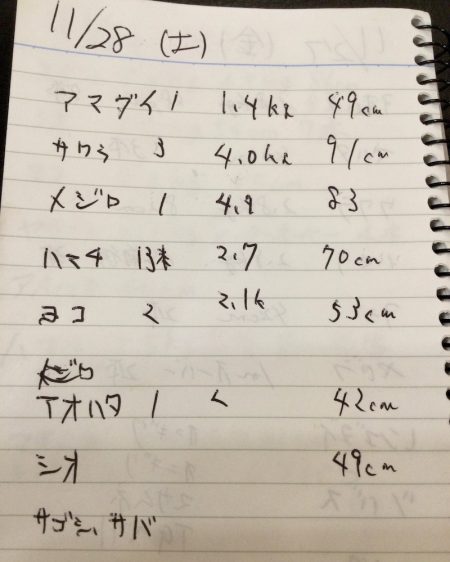 11/28 (土)
アマダイ 1 1.4kg 49cm
サワラ 3 4.0kg 91cm
メジロ 1 4.9 83
ハマチ 13本 2.7 70cm
ヨコ 2 2.1k 53cm
メジロ
アオハタ 1 42cm
シオ 49cm
サゴシ、サバ